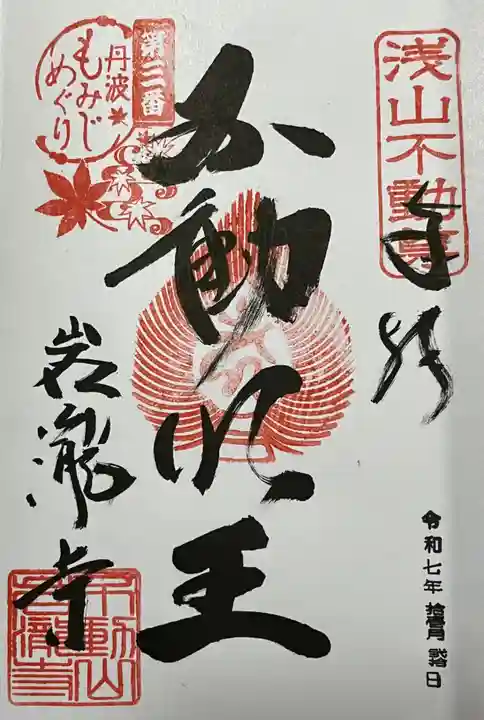 浅山不動尊
奉拝
令和七年 拾壱月 弐拾日
不動明王
第三番
丹波
もみじ
めぐり
岩瀧寺
不動山
岩瀧寺